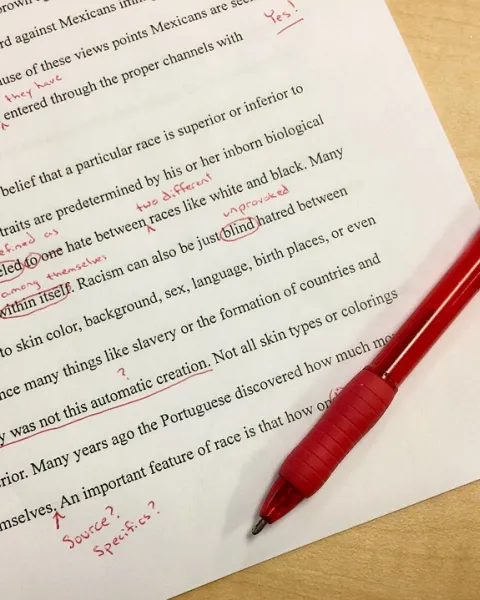 rd against Mexicans
Yes!
ause of these views points Mexicans are
they have
entered through the proper channels with
belief that a particular race is superior or inferior to
traits are predetermined by his or her inborn biological
two different
races like white and black. Many
unprovoked
efined as
eled to one hate between
among themselves
within itself. Racism can also be just blind hatred between
to skin color, background, sex, language, birth places, or even
nce many things like slavery or the formation of countries and
?
y was not this automatic creation. Not all skin types or colorings
rior. Many years ago the Portuguese discovered how much
mselves, An important feature of race is that how
Source?
Specifics?